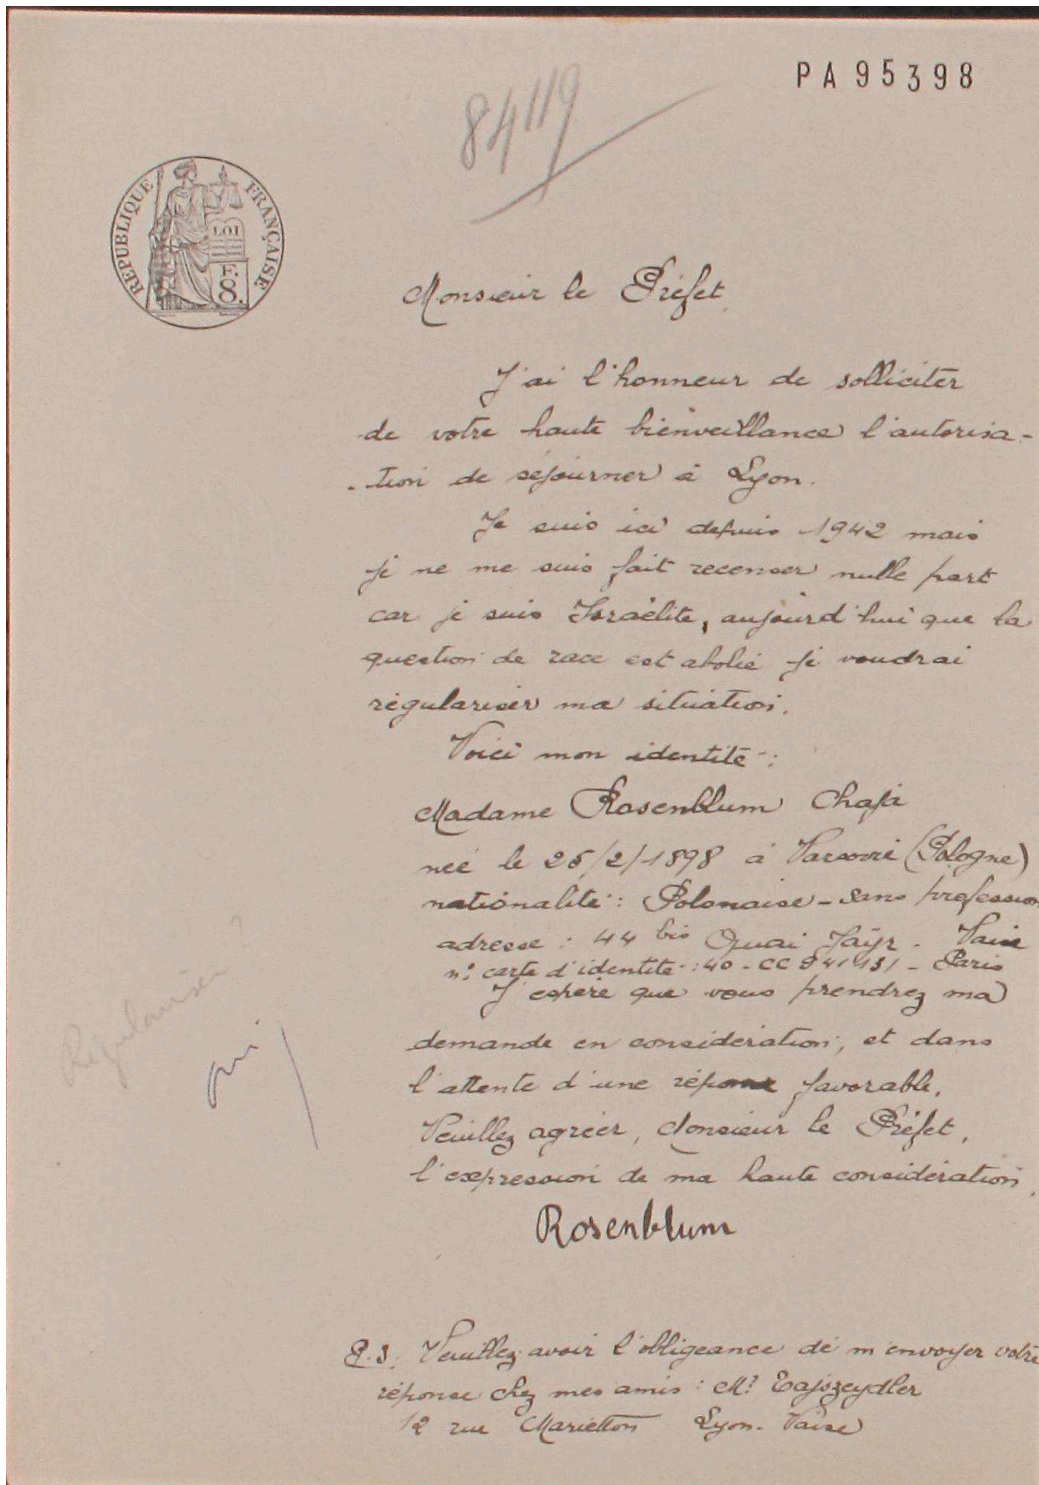 PA95398
84119
RÉPUBLIQUE FRANÇAISE
LOI
F.
8.
Monsieur le Préfet
J'ai l'honneur de solliciter
de votre haute bienveillance l'autorisa-
-tion de séjourner à Lyon.
Je suis ici depuis 1942 mais
je ne me suis fait recenser nulle part
car je suis Israélite, aujourd'hui que la
question de race est abolie je voudrai
régulariser ma situation.
Voici mon identité :
Madame Rosenblum Chaja
née le 26/2/1898 à Varsovie (Pologne)
nationalité : Polonaise - Sans profession
adresse : 44 bis Quai Jaÿr - Vaise
n° carte d'identité : 40 - CC 94151 - Paris
J'espère que vous prendrez ma
demande en considération, et dans
l'attente d'une réponse favorable,
Veuillez agréer, Monsieur le Préfet,
l'expression de ma haute considération.
Rosenblum
Régulariser ?
oui
P.S. Veuillez avoir l'obligeance de m'envoyer votre
réponse chez mes amis : Mr Tajszeydler
12 rue Marietton Lyon-Vaise